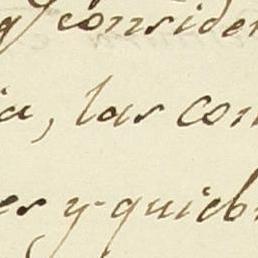 q consider
ia, las con
es y quieb